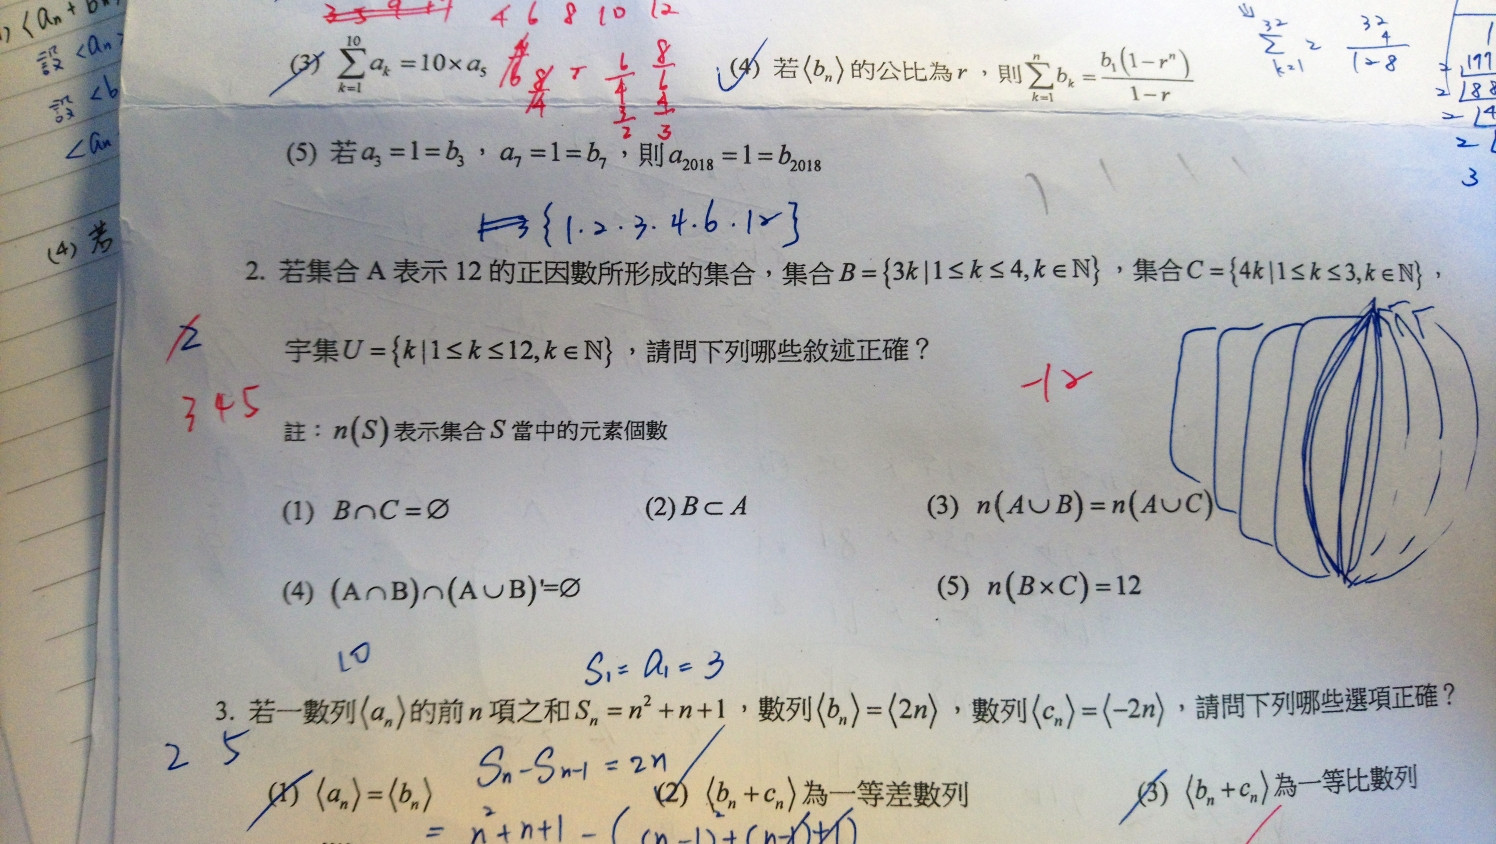 4 6 8 10 12
(3) \sum_{k=1}^{10} a_k = 10×a_5
(4) 若⟨b_n⟩的公比為r，則\sum_{k=1}^{n} b_k = \frac{b_1(1-r^n)}{1-r}
(5) 若a_3=1=b_3，a_7=1=b_7，則a_{2018}=1=b_{2018}
{1.2.3.4.6.12}
2. 若集合 A 表示 12 的正因數所形成的集合，集合B={3k|1≤k≤4,k∈ℕ}，集合C={4k|1≤k≤3,k∈ℕ}，
宇集U={k|1≤k≤12,k∈ℕ}，請問下列哪些敘述正確？
2
345
-12
註：n(S)表示集合S當中的元素個數
(1) B∩C=∅ (2) B⊂A (3) n(A∪B)=n(A∪C)
(4) (A∩B)∩(A∪B)'=∅ (5) n(B×C)=12
10
S_1=a_1=3
3. 若一數列⟨a_n⟩的前n項之和S_n=n^2+n+1，數列⟨b_n⟩=⟨2n⟩，數列⟨c_n⟩=⟨-2n⟩，請問下列哪些選項正確？
2 5
S_n-S_{n-1}=2n
(1) ⟨a_n⟩=⟨b_n⟩ (2) ⟨b_n+c_n⟩為一等差數列 (3) ⟨b_n+c_n⟩為一等比數列
= n^2+n+1-((n-1)^2+(n-1)+1)
設<an>
設<b
<an
(4) 若